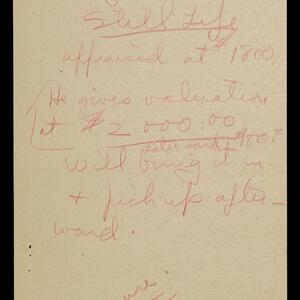 Still Life
appraised at $1800.
He gives valuation
at $2000.00
later said $1800.00
Will bring it in
+ pick up after-
ward.